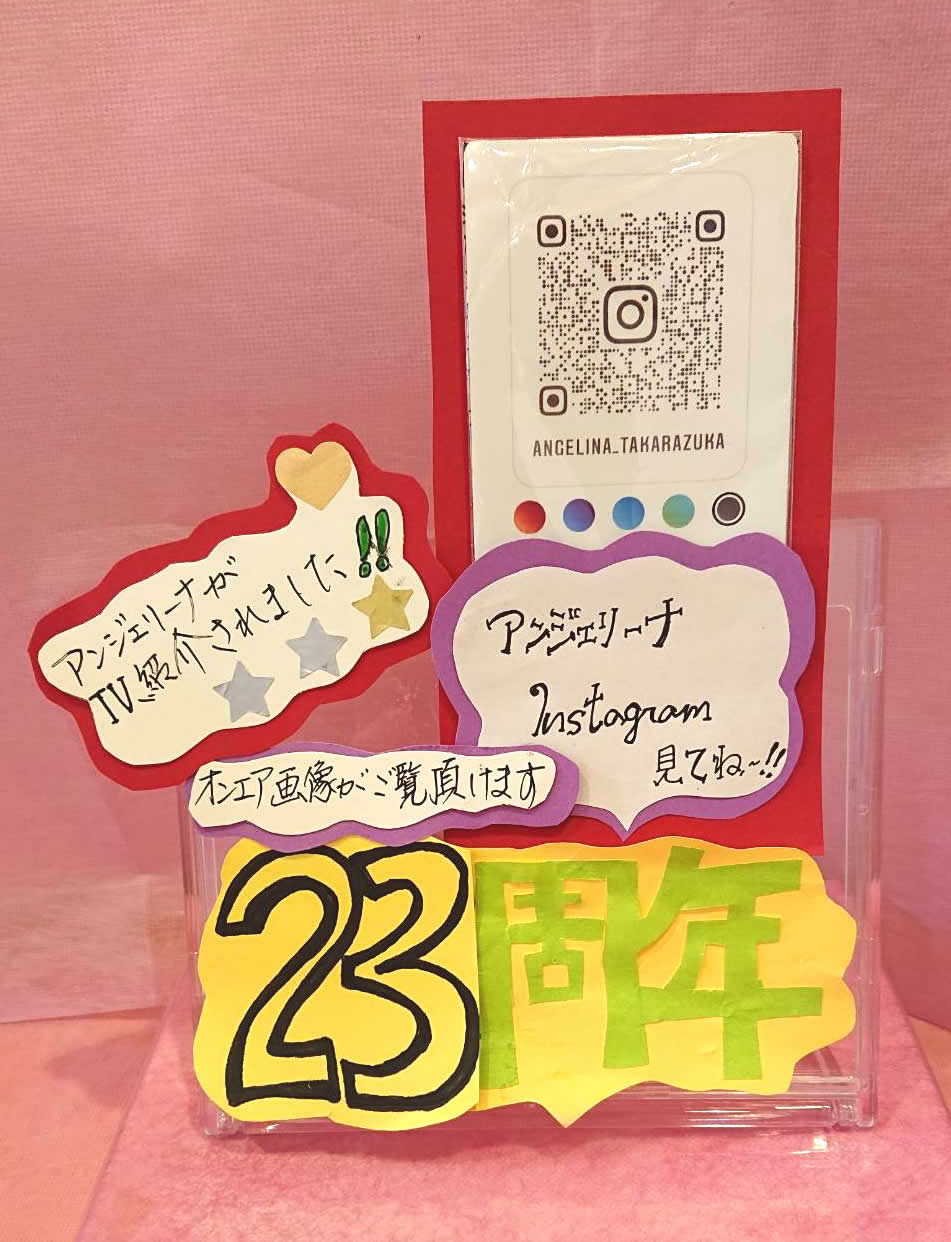 ANGELINA_TAKARAZUKA
アンジェリーナが
TV紹介されました!!
アンジェリーナ
Instagram
見てね~!!
オンエア画像がご覧頂けます
23周年